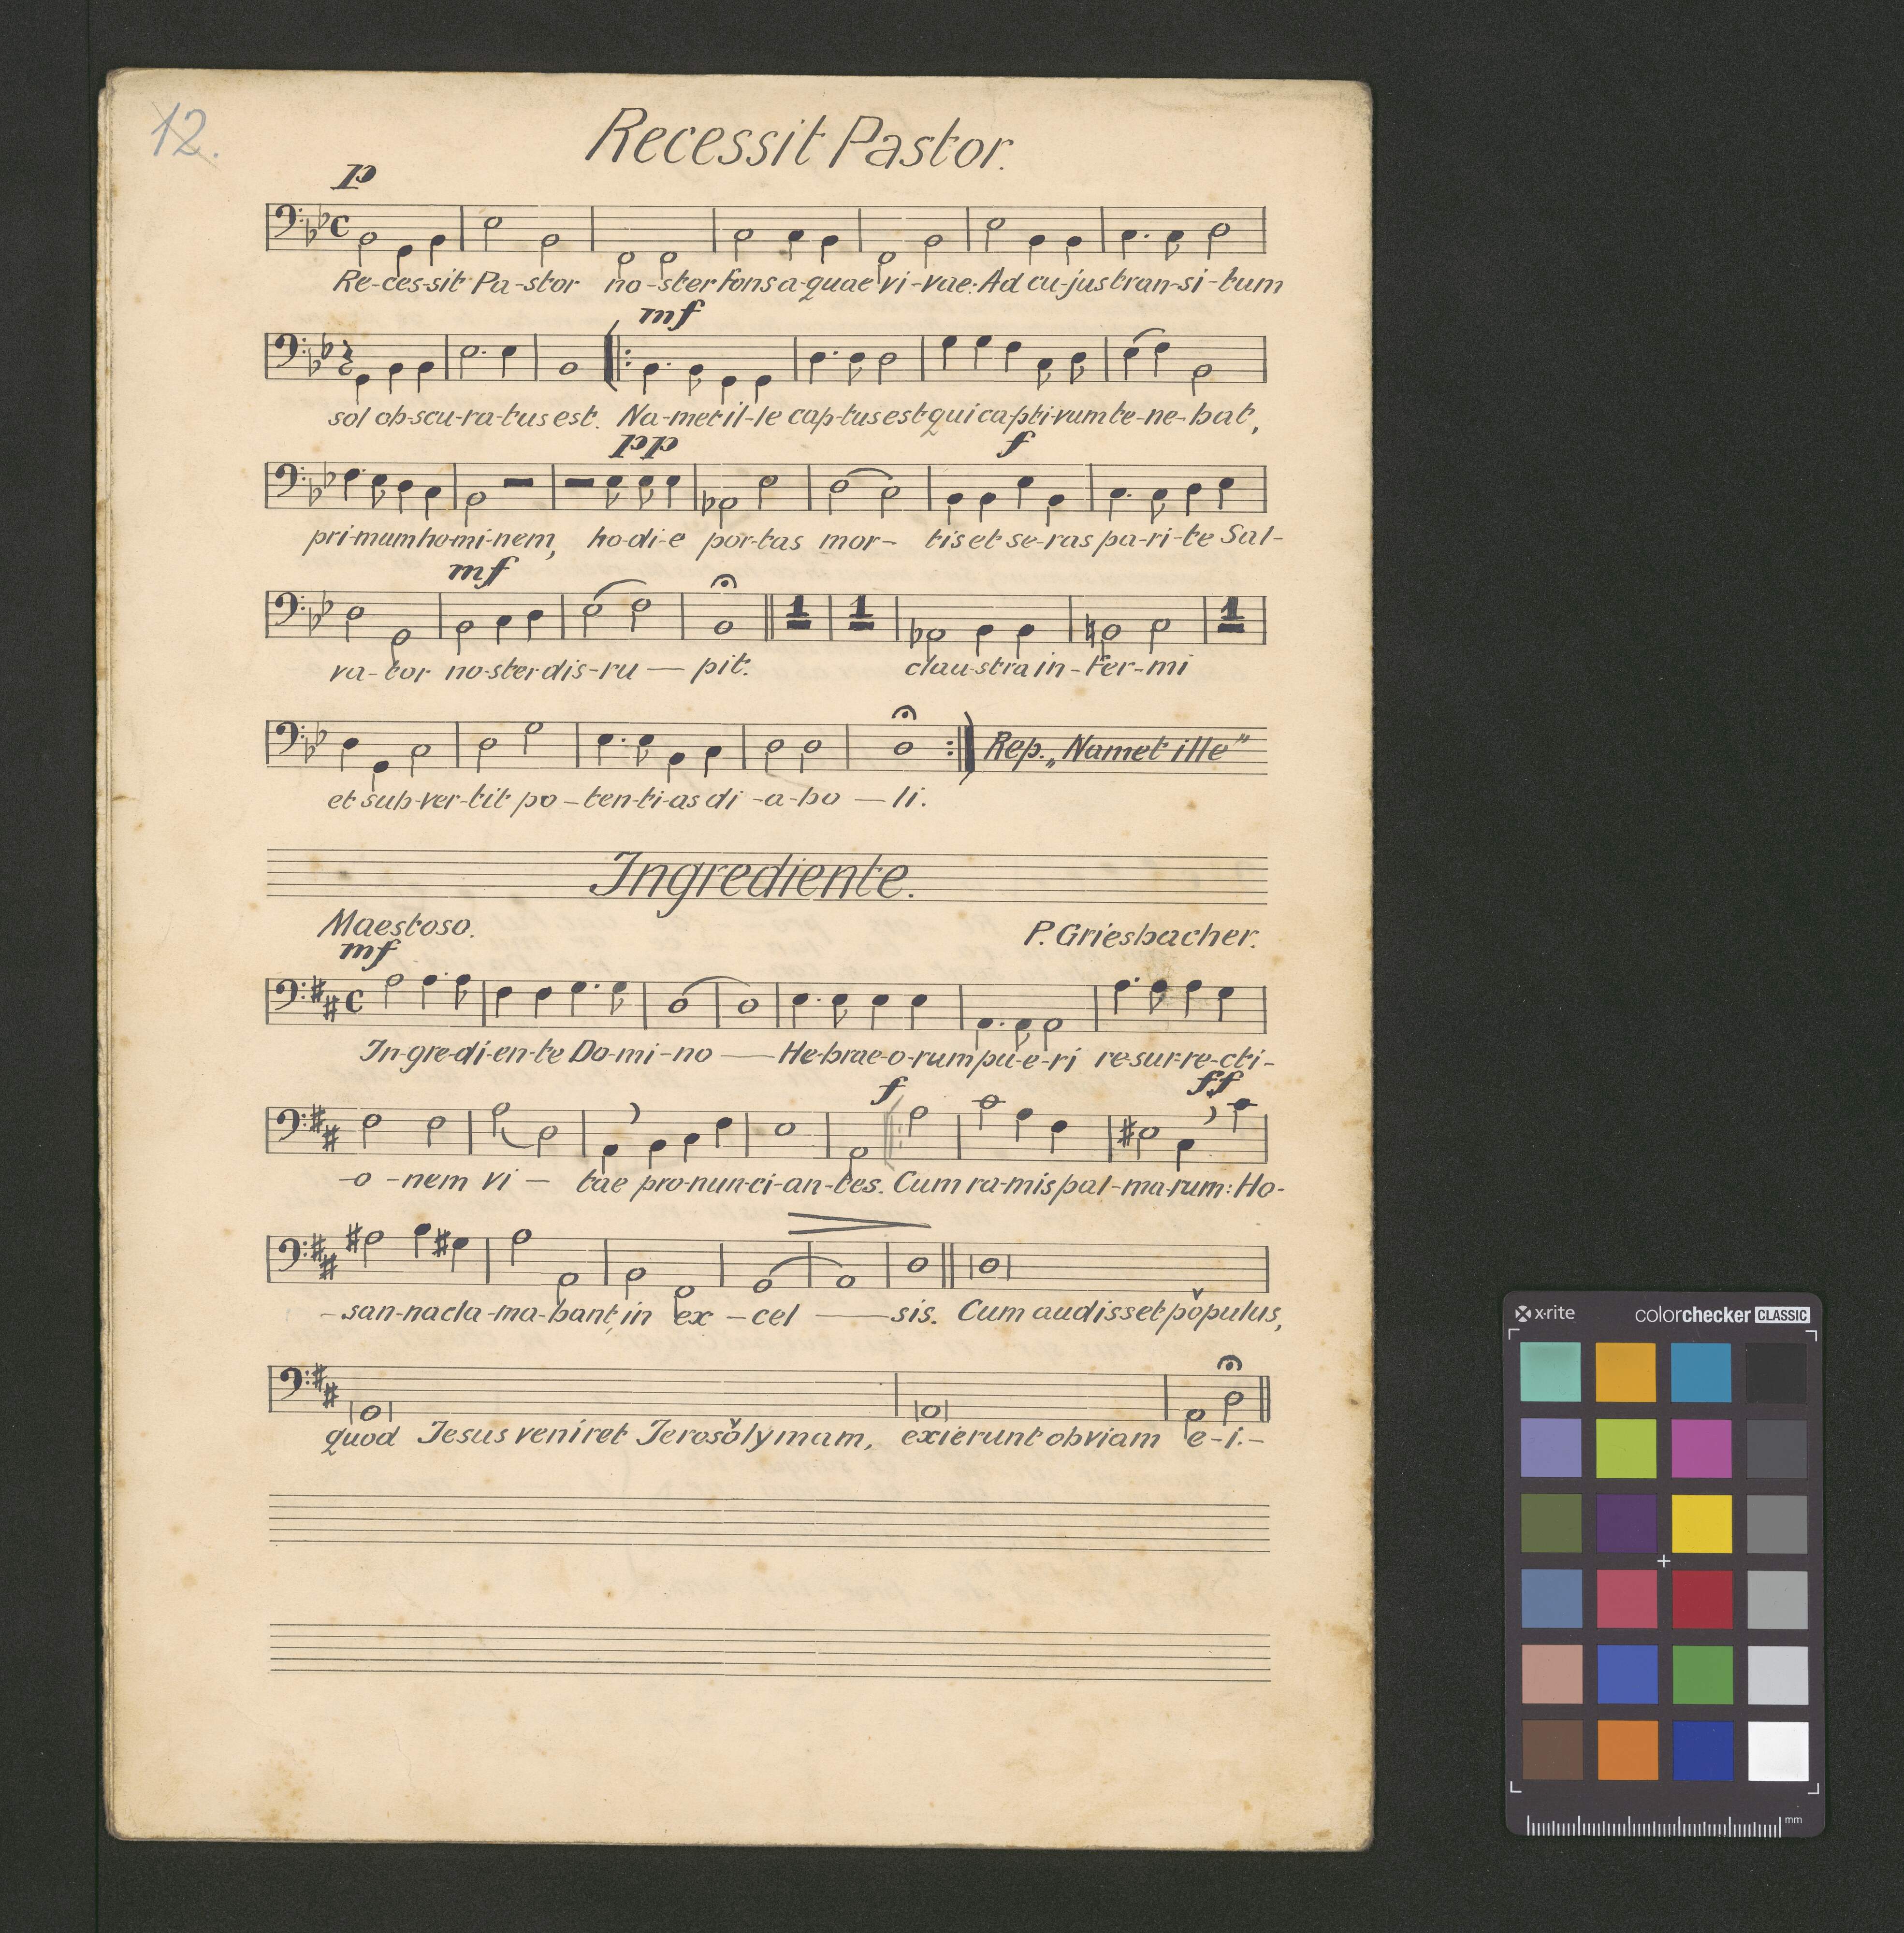 12.
Recessit Pastor.
p
Re-ces-sit Pa-stor no-ster fons a-quae vi-vae: Ad cu-jus tran-si-tum
mf
sol ob-scu-ra-tus est. Na-met il-le cap-tus est qui ca-pti-vum te-ne-bat,
pp f
pri-mum ho-mi-nem, ho-di-e por-tas mor- tis et se-ras pa-ri-te Sal-
mf
1 1 1
va-tor no-ster dis-ru — pit. clau-stra in-fer-mi
Rep. „Namet ille"
et sub-ver-tit po-ten-ti-as di-a-bo — li.
Ingrediente.
Maestoso. P. Griesbacher.
mf
In-gre-di-en-te Do-mi-no — He-brae-o-rum pu-e-ri re-sur-re-cti-
f ff
-o -nem vi — tae pro-nun-ci-an-tes. Cum ra-mis pal-ma-rum: Ho-
-san-na cla-ma-bant, in ex-cel — sis. Cum audisset pŏpulus,
quod Jesus veniret Jerosŏlymam, exierunt obviam e-i.-
x-rite colorchecker CLASSIC
mm